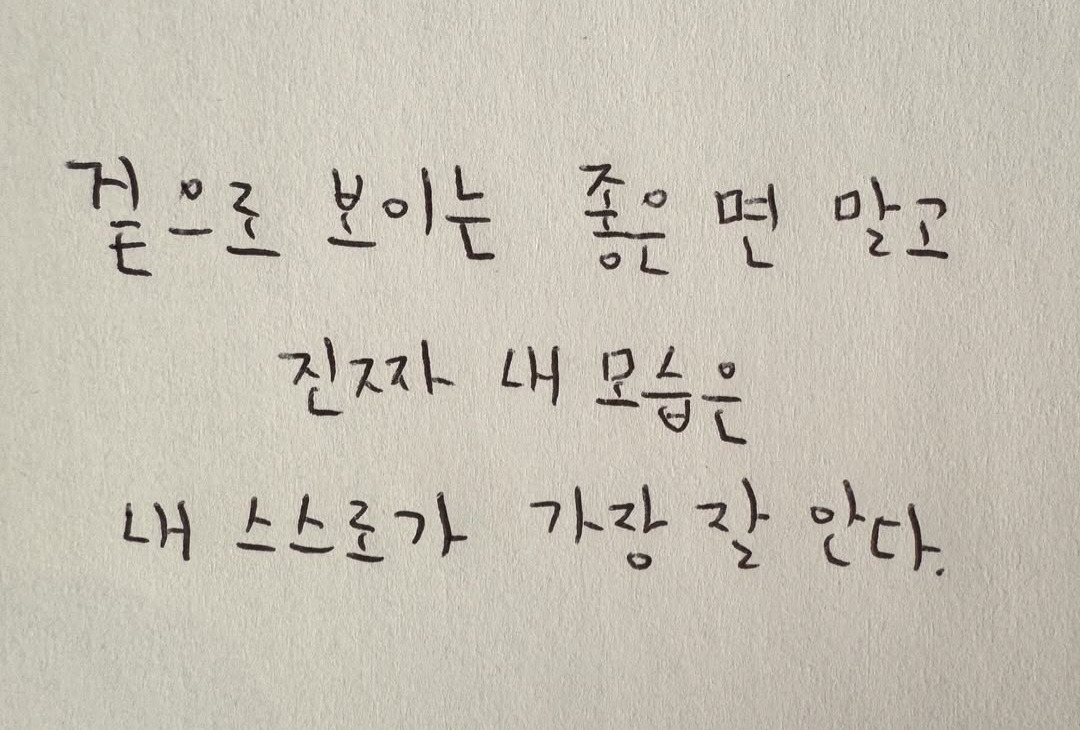 겉으로 보이는 좋은 면 말고
진짜 내 모습은
내 스스로가 가장 잘 안다.